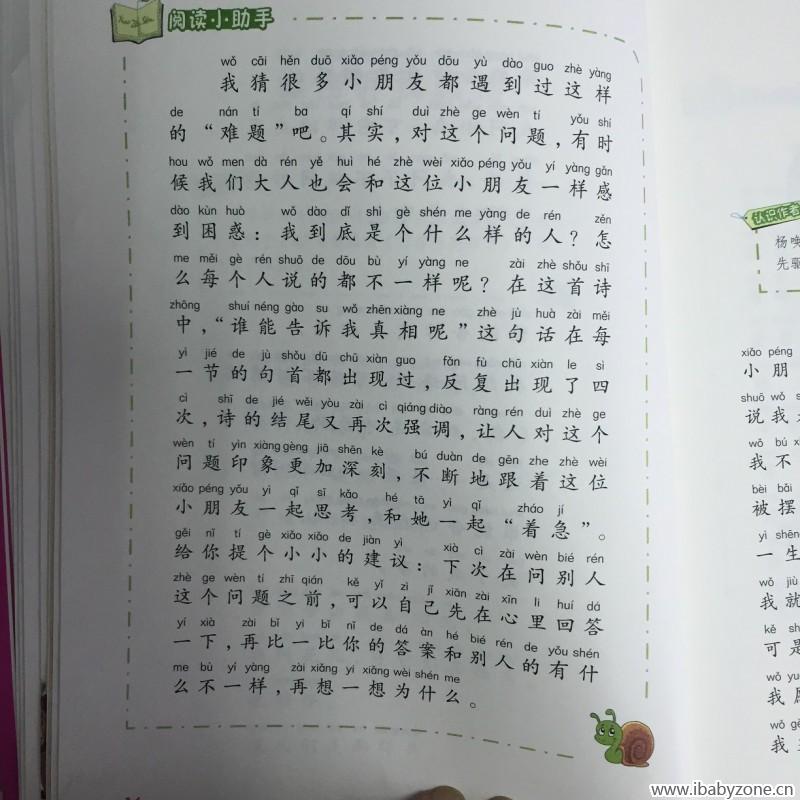 阅读小助手
wǒ cāi hěn duō xiǎo péng yǒu dōu yù dào guo zhè yàng
我猜很多小朋友都遇到过这样
de nán tí ba qí shí duì zhè ge wèn tí yǒu shí
的“难题”吧。其实，对这个问题，有时
hou wǒ men dà rén yě huì hé zhè wèi xiǎo péng yǒu yí yàng gǎn
候我们大人也会和这位小朋友一样感
dào kùn huò wǒ dào dǐ shì gè shén me yàng de rén zěn
到困惑：我到底是个什么样的人？怎
me měi gè rén shuō de dōu bù yí yàng ne zài zhè shǒu shī
么每个人说的都不一样呢？在这首诗
zhōng shuí néng gào su wǒ zhēn xiàng ne zhè jù huà zài měi
中，“谁能告诉我真相呢”这句话在每
yì jié de jù shǒu dū chū xiàn guo fǎn fù chū xiàn le sì
一节的句首都出现过，反复出现了四
cì shī de jié wěi yòu zài cì qiáng diào ràng rén duì zhè ge
次，诗的结尾又再次强调，让人对这个
wèn tí yìn xiàng gèng jiā shēn kè bú duàn de gēn zhe zhè wèi
问题印象更加深刻，不断地跟着这位
xiǎo péng yǒu yì qǐ sī kǎo hé tā yì qǐ zháo jí
小朋友一起思考，和她一起“着急”。
gěi nǐ tí gè xiǎo xiǎo de jiàn yì xià cì zài wèn bié rén
给你提个小小的建议：下次在问别人
zhè ge wèn tí zhī qián kě yǐ zì jǐ xiān zài xīn li huí dá
这个问题之前，可以自己先在心里回答
yí xià zài bǐ yi bǐ nǐ de dá àn hé bié rén de yǒu shén
一下，再比一比你的答案和别人的有什
me bù yí yàng zài xiǎng yi xiǎng wèi shén me
么不一样，再想一想为什么。
认识作者
杨唤
先驱
xiǎo péng
小朋
shuō wǒ
说我
wǒ bú
我不
bèi bǎi
被摆
yì shēng
一生
wǒ jiù
我就
kě sh
可是
我愿
wǒ
我
www.ibabyzone.cn